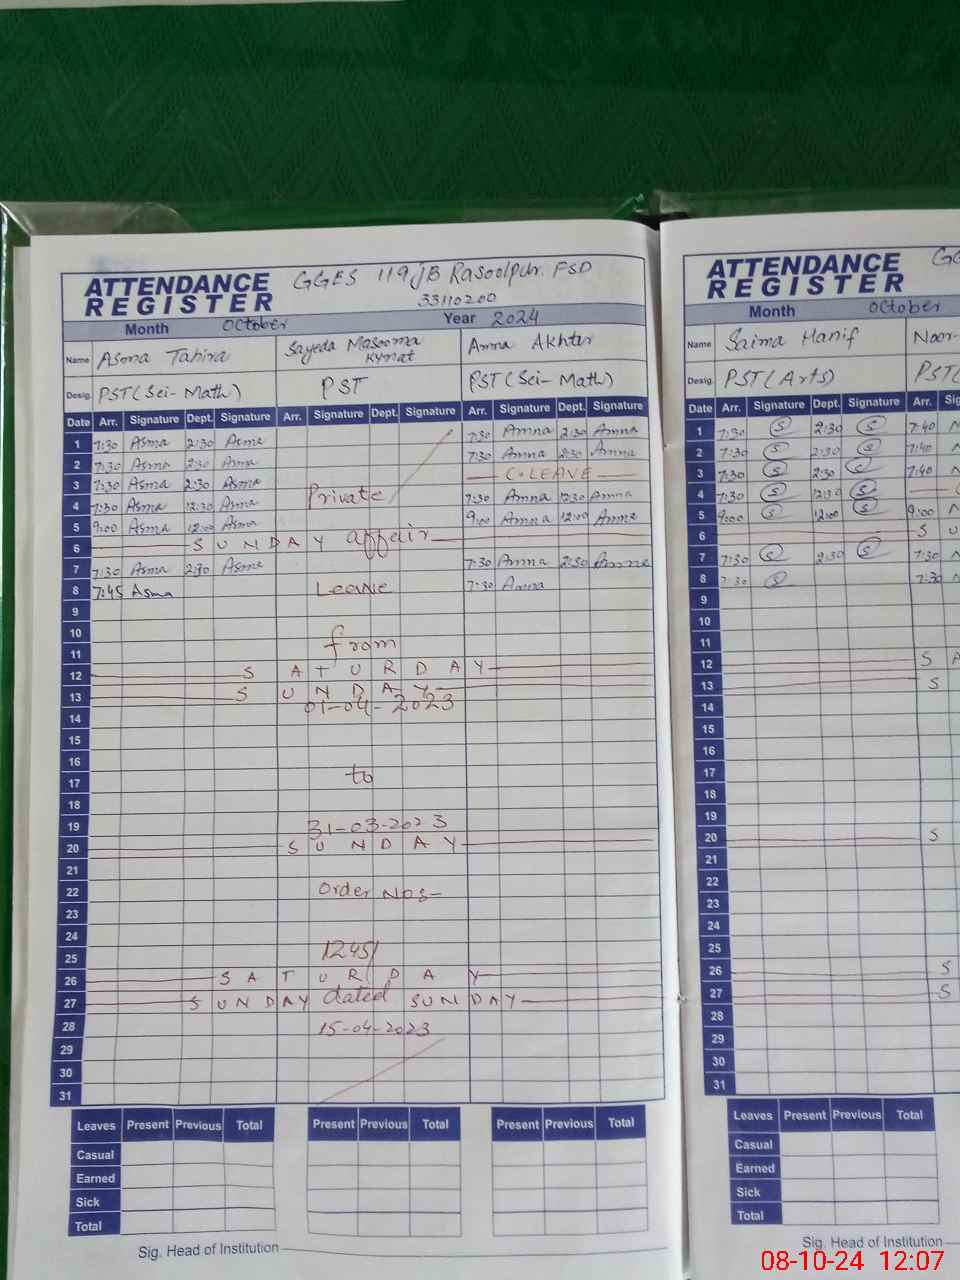 ATTENDANCE REGISTER GGES 119 JB Rasoolpur. FSD
33110200
Month October Year 2024
Name Asma Tahira Sayeda Masooma Kynat Amna Akhter
Desig. PST (Sci- Math) PST PST (Sci- Math)
Date Arr. Signature Dept. Signature Arr. Signature Dept. Signature Arr. Signature Dept. Signature
1 7:30 Asma 2:30 Asma 7:30 Amna 2:30 Amna
2 7:30 Asma 2:30 Asma 7:30 Amna 2:30 Amna
3 7:30 Asma 2:30 Asma C.LEAVE
4 7:30 Asma 12:30 Asma Private 7:30 Amna 12:30 Amna
5 9:00 Asma 12:00 Asma 9:00 Amna 12:00 Amna
6 SUNDAY affair
7 7:30 Asma 2:30 Asma 7:30 Amna 2:30 Amna
8 7:45 Asma Leave 7:30 Amna
9
10 from
11
12 SATURDAY
13 SUNDAY
14 01-04-2023
15
16
17 to
18
19 31-03-2023
20 SUNDAY
21
22 Order NOS-
23
24
25 12451
26 SATURDAY
27 SUNDAY dated SUNDAY
28 15-04-2023
29
30
31
Leaves Present Previous Total Present Previous Total Present Previous Total
Casual
Earned
Sick
Total
Sig. Head of Institution
ATTENDANCE REGISTER GG
Month October
Name Saima Hanif Noor-
Desig. PST (Arts) PST(
Date Arr. Signature Dept. Signature Arr. Sig
1 7:30 S 2:30 S 7:40
2 7:30 S 2:30 S 7:40
3 7:30 S 2:30 7:40
4 7:30 S 12:30 S
5 9:00 S 12:00 S 9:00
6 S U
7 7:30 S 2:30 S 7:30
8 7:30 S 7:30
9
10
11
12 S A
13 S
14
15
16
17
18
19
20 S
21
22
23
24
25
26 S
27 S
28
29
30
31
Leaves Present Previous Total
Casual
Earned
Sick
Total
Sig. Head of Institution
08-10-24 12:07